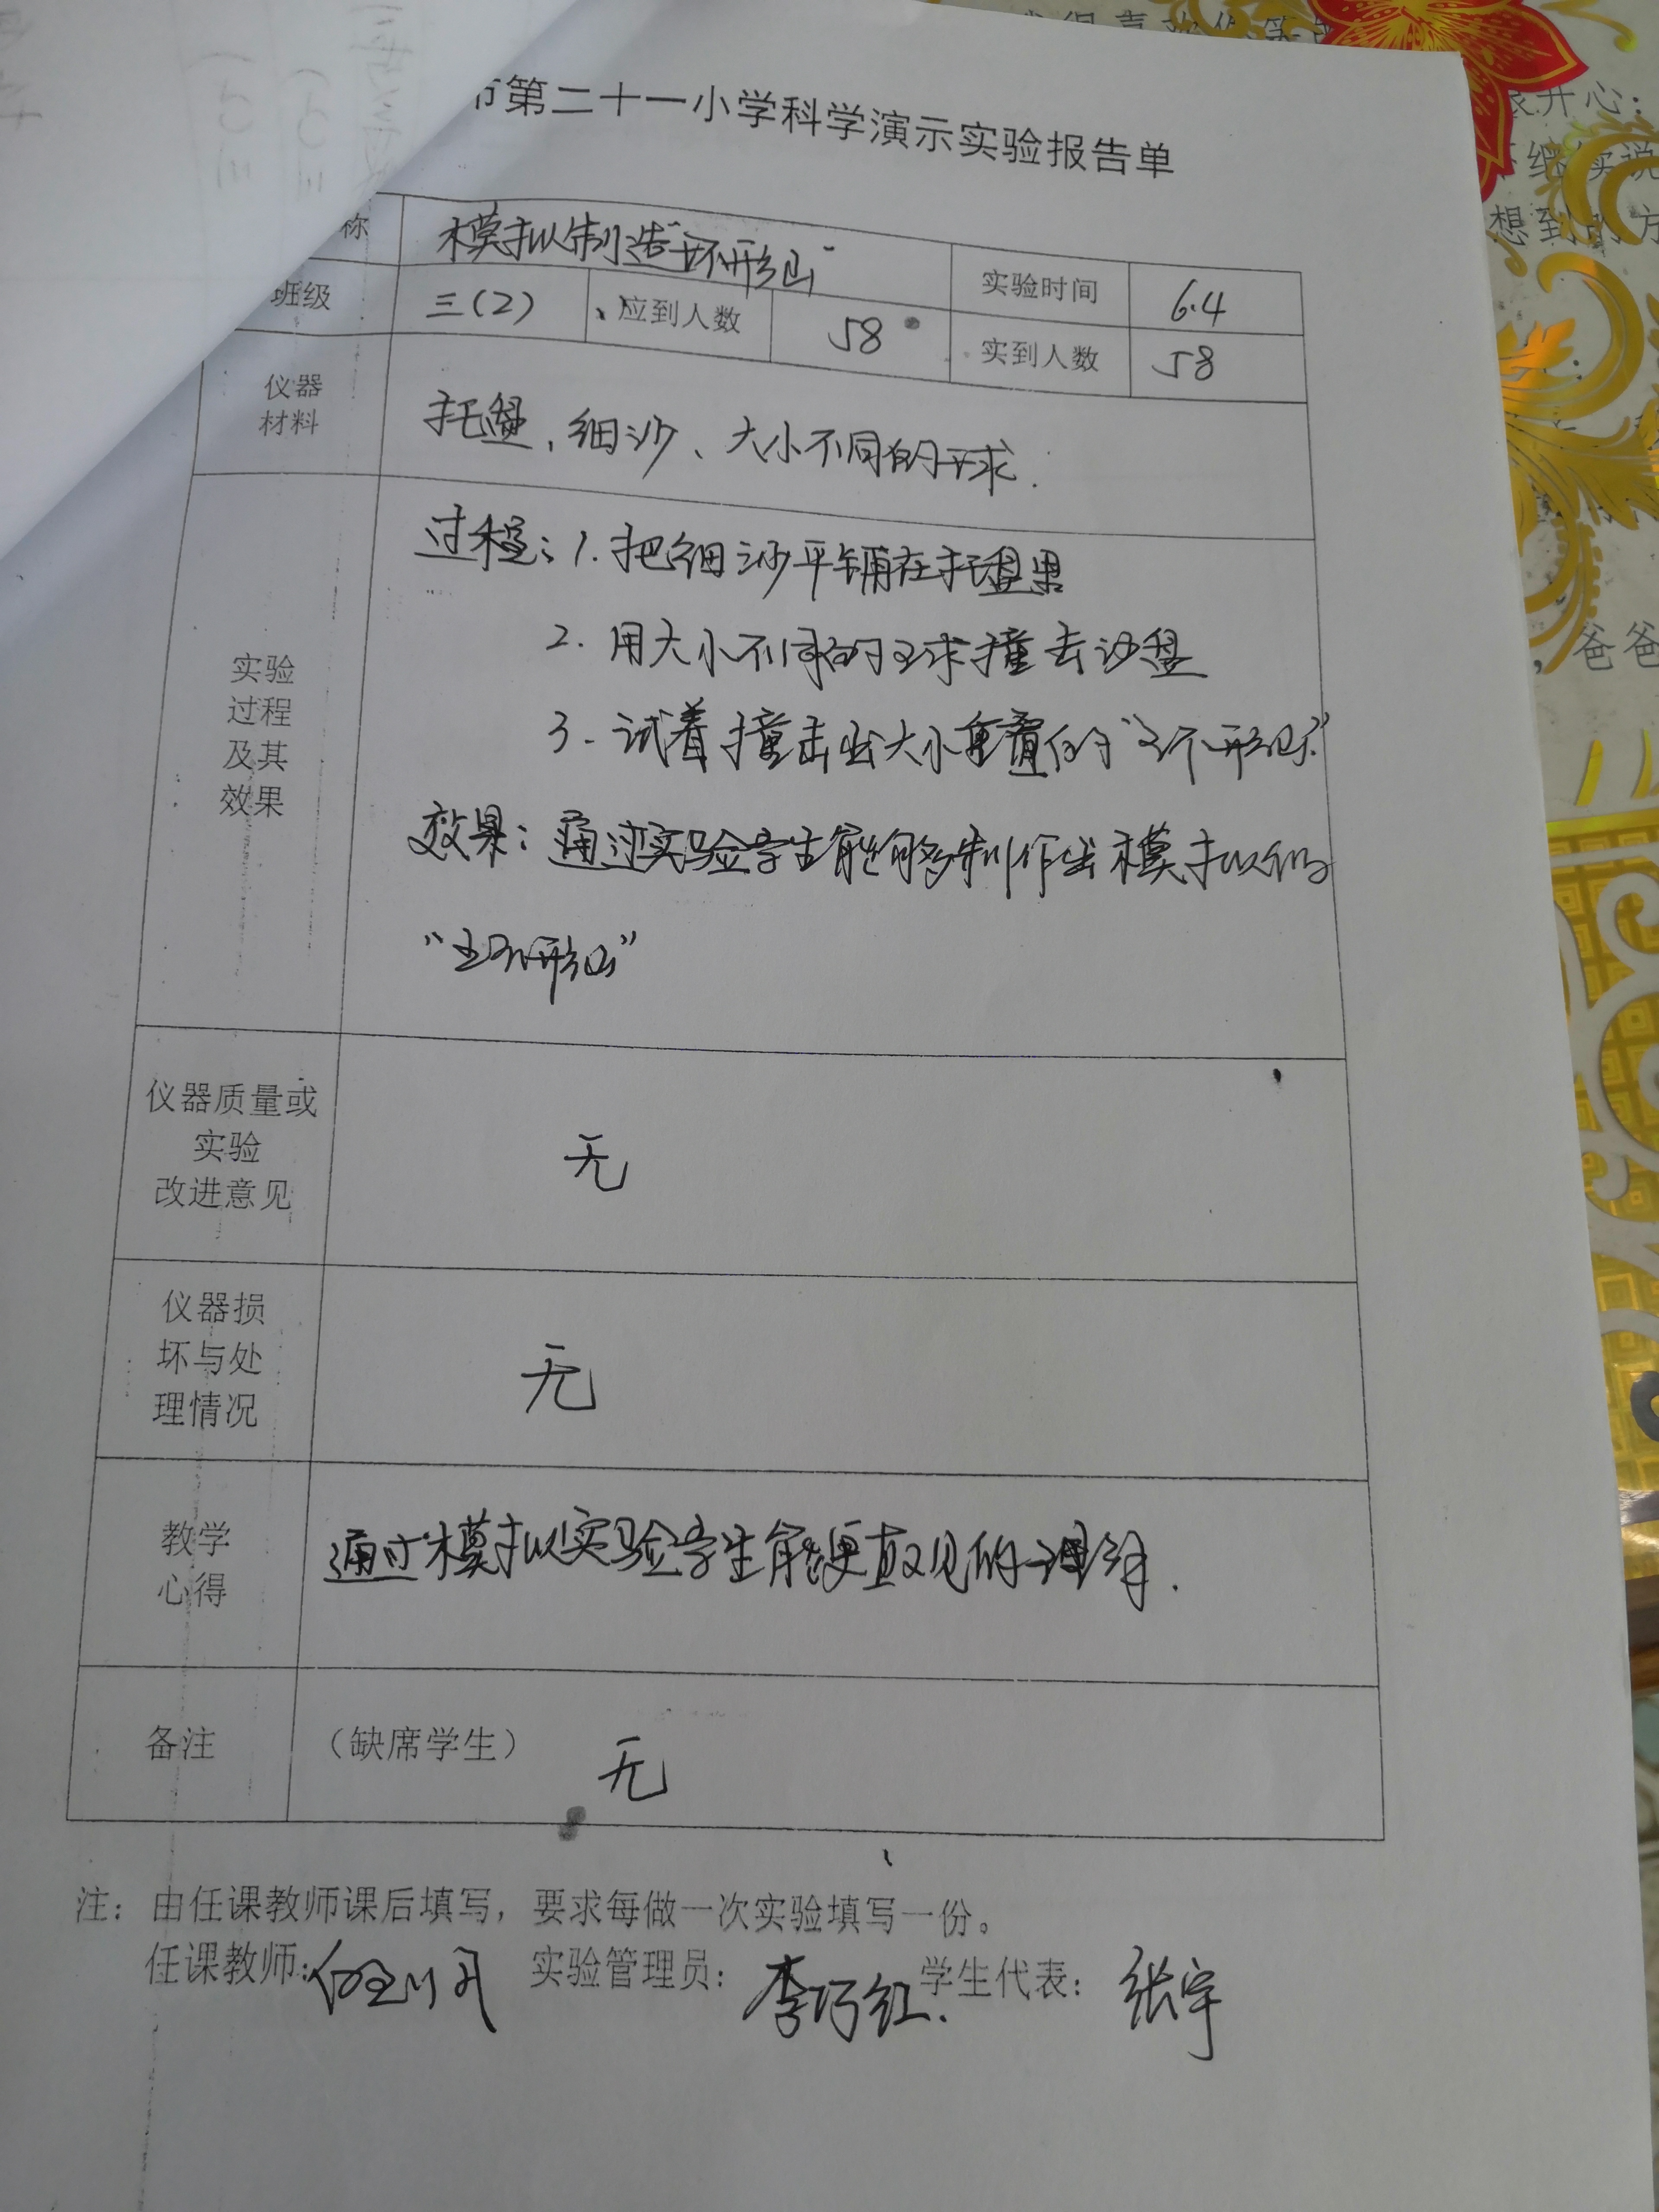 市第二十一小学科学演示实验报告单
称 模拟制造“环形山” 实验时间 6.4
班级 三(2) 应到人数 58 实到人数 58
仪器
材料
托盘、细沙、大小不同的球.
实验
过程
及其
效果
过程:1.把细沙平铺在托盘里
2.用大小不同的球撞击沙盘
3.试着撞击出大小重叠的“环形山”
效果:通过实验学生能够制作出模拟的
“环形山”
仪器质量或
实验
改进意见
无
仪器损
坏与处
理情况
无
教学
心得
通过模拟实验学生能更直观的理解.
备注 (缺席学生) 无
注:由任课教师课后填写,要求每做一次实验填写一份。
任课教师: 实验管理员:李巧红. 学生代表:张宇
开心:
继续说
想到
爸爸